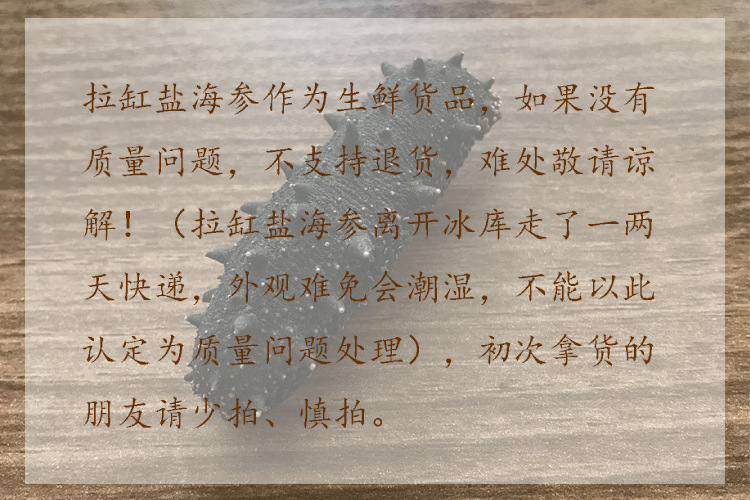 拉缸盐海参作为生鲜货品，如果没有
质量问题，不支持退货，难处敬请谅
解！（拉缸盐海参离开冰库走了一两
天快递，外观难免会潮湿，不能以此
认定为质量问题处理），初次拿货的
朋友请少拍、慎拍。